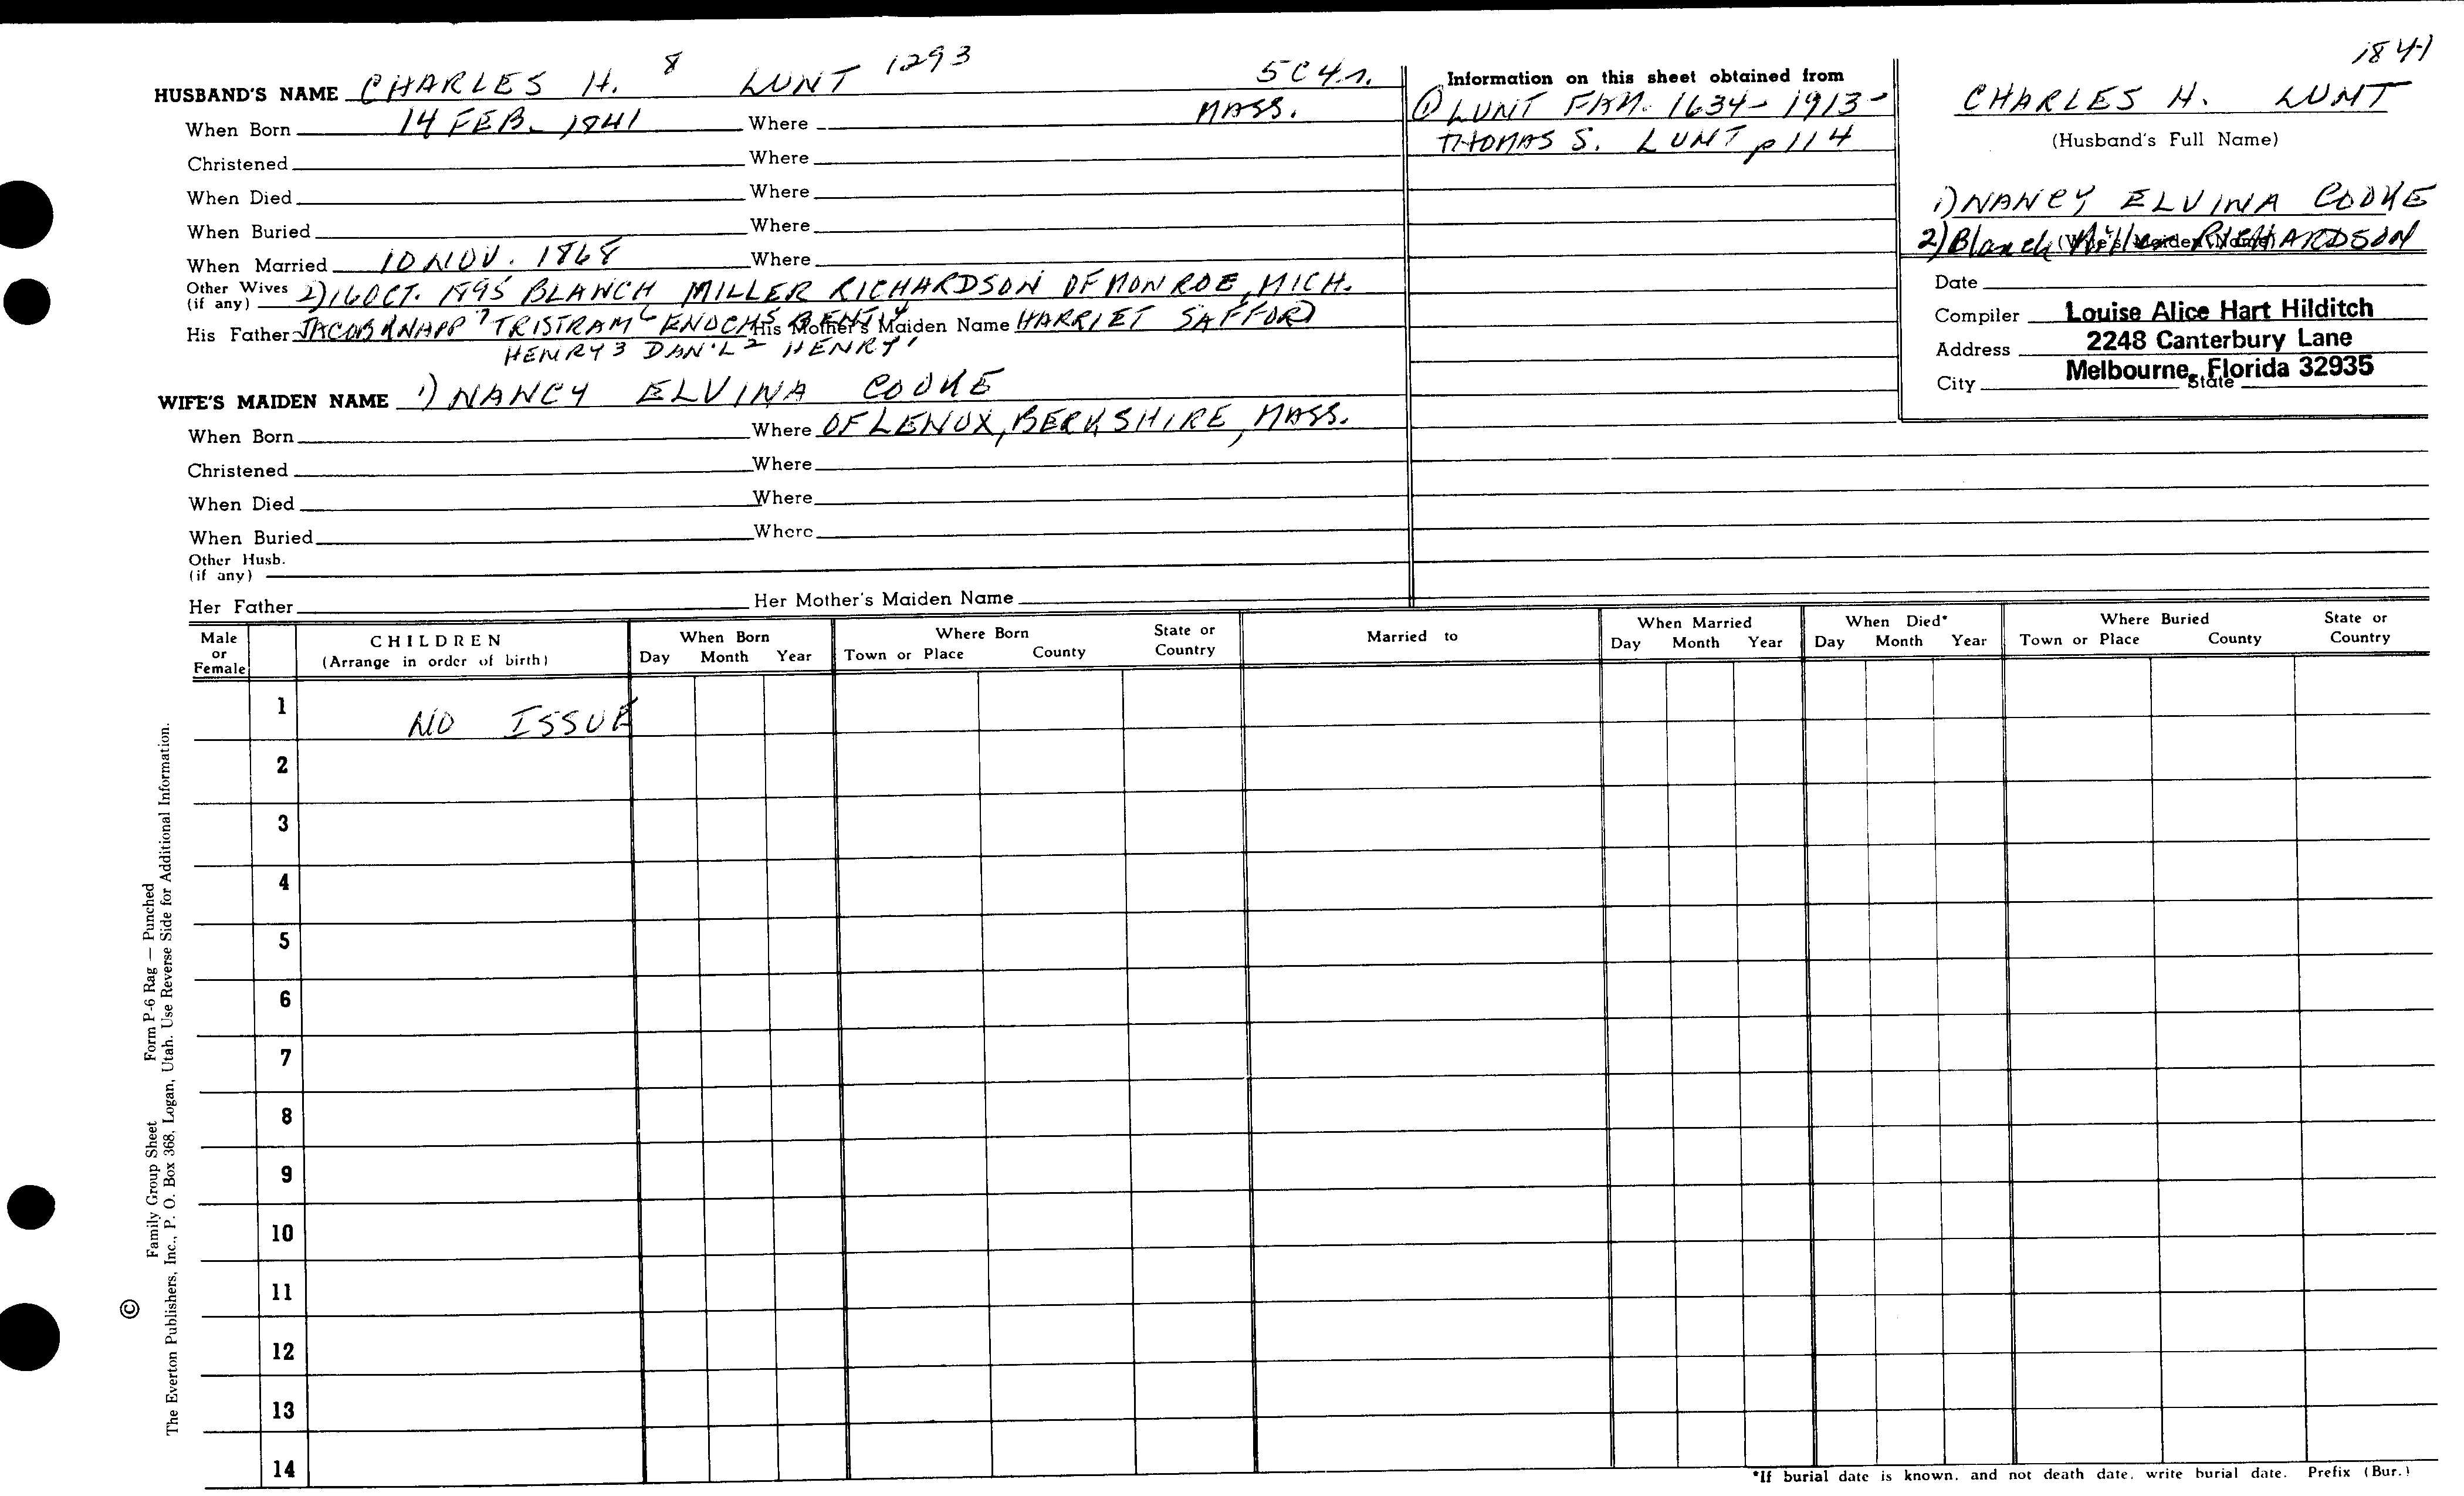 1841
HUSBAND'S NAME CHARLES H. 8 LUNT 1293 5C4r.
When Born 14 FEB. 1841 Where MASS.
Christened Where
When Died Where
When Buried Where
When Married 10 NOV. 1868 Where
Other Wives (if any) 2) 16 OCT. 1895 BLANCH MILLER RICHARDSON OF MONROE, MICH.
His Father JACOB KNAPP 7 TRISTRAM 6 ENOCH 5 BENJ 4 His Mother's Maiden Name HARRIET SAFFORD
HENRY 3 DAN'L 2 HENRY 1
WIFE'S MAIDEN NAME 1) NANCY ELVINA COOKE
When Born Where OF LENOX, BERKSHIRE, MASS.
Christened Where
When Died Where
When Buried Where
Other Husb. (if any)
Her Father Her Mother's Maiden Name
Information on this sheet obtained from
① LUNT FAM. 1634-1913-
THOMAS S. LUNT p 114
CHARLES H. LUNT
(Husband's Full Name)
1) NANCY ELVINA COOKE
2) Blanch Miller RICHARDSON
(Wife's Maiden Name)
Date
Compiler Louise Alice Hart Hilditch
Address 2248 Canterbury Lane
City Melbourne, Florida 32935 State
Male or Female
CHILDREN (Arrange in order of birth)
When Born Day Month Year
Where Born Town or Place County State or Country
Married to
When Married Day Month Year
When Died* Day Month Year
Where Buried Town or Place County State or Country
1 NO ISSUE
2
3
4
5
6
7
8
9
10
11
12
13
14
*If burial date is known, and not death date, write burial date. Prefix (Bur.)
© Family Group Sheet Form P-6 Rag — Punched
The Everton Publishers, Inc., P. O. Box 368, Logan, Utah. Use Reverse Side for Additional Information.